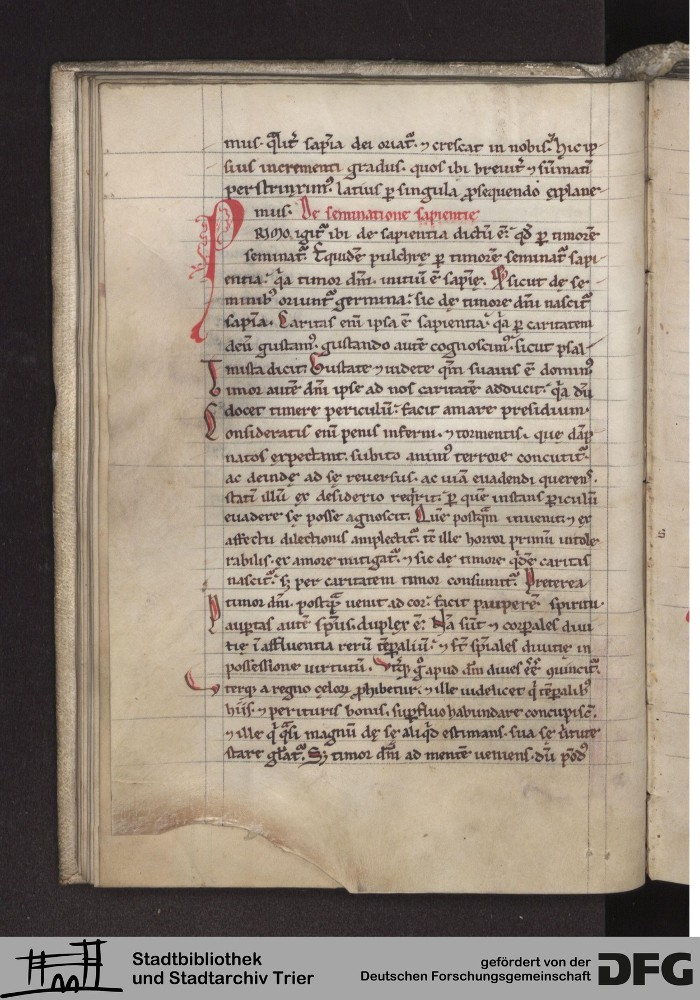 mus. Qualit̃ sapĩa dei oriat᷑. ⁊ crescat in nobis. Hic ip
sius incrementi gradus. quos ibi breuit᷑ ⁊ sũmatĩ
perstrinxim᷒. latius ꝑ singula ꝓsequendo explane
mus. De seminatione sapientie
PRIMO igit᷑ ibi de sapientia dictũ ẽ. qđ ꝑ timorẽ
seminat᷑. Et quidẽ pulchrę ꝑ timorẽ seminat᷑ sapi
entia. q̃a timor dñi. initiũ ẽ sapĩę. Q sicut dę se
minib᷒ oriunt᷑ germina. sic dę timore dñi nascit᷑
sapĩa. Caritas eñi ipsa ẽ sapientia. q̃a ꝑ caritatem
deũ gustam᷒. gustando autẽ cognoscim᷒. sicut psal
mista dicit. Gustate ⁊ uidete qm̃ suauis ẽ domin᷒
Timor autẽ dñi ipse ad nos caritatẽ adducit. q̃a dũ
docet timere periculũ. facit amare presidium.
Consideratis eñi penis inferni. ⁊ tormentis. que dãp
natos expectant. subito anim᷒ terrore concutit᷑.
ac deinde ad sę reuersus. ac uiã euadendi querens.
statĩ illũ ex desiderio reqrit. ꝑ quẽ instans ꝑiculũ
euadere se posse agnoscit. Quẽ postquã inuenit. ⁊ ex
affectu dilectionis amplectit᷑. tẽ ille horror primũ intole
rabilis. ex amore mitigat᷑. ⁊ sic dę timore. qdẽ caritis
nascit᷑. sꝫ per caritatem timor consumit᷑. Preterea
timor dñi. postq̃ uenit ad cor. facit pauperẽ spiritu.
Paup̱tas autẽ spñs. duplex ẽ. Nã sũt ⁊ corꝑales diui
tię ĩ affluentia rerũ tẽꝑaliũ. ⁊ sť spĩales diuitie in
possessione uirtutũ. Vtq̃ gͦ apud dñm diues eẽ quincit᷑.
Vterq̃ a regno cęloꝝ ꝓhibetur. ⁊ ille uidelicet q̇ tẽꝑalib᷒
hiis. ⁊ perituris bonis. suꝑfluo habundare concupisc̃.
⁊ ille q̇ q̃si magnũ dę sę aliqd estimans. sua se ũtute
stare gl̃at᷑. Sꝫ timor dñi ad mentẽ ueniens. dũ p̃os
Stadtbibliothek
und Stadtarchiv Trier
gefördert von der
Deutschen Forschungsgemeinschaft
DFG